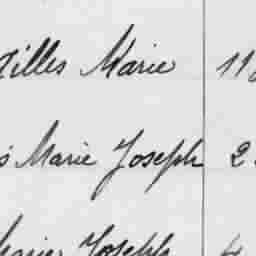 Gilles Marie 11
s Marie Joseph 2
Joseph